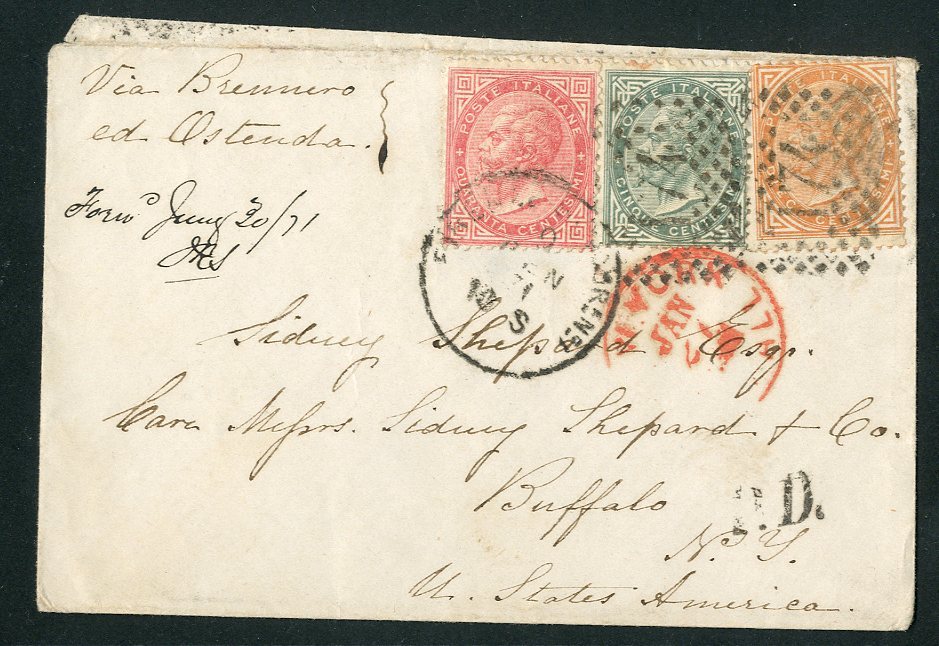 Via Brennero
ed Ostenda.
Forwd Jany 20/71
POSTE ITALIANE
QUARANTA CENTESIMI
POSTE ITALIANE
CINQUE CENTESIMI
POSTE ITALIANE
CENTESIMI
174
10 S
JAN
Sidney Shepard Esqr.
Care Messrs. Sidney Shepard & Co.
Buffalo
P.D.
N.Y.
U. States America.